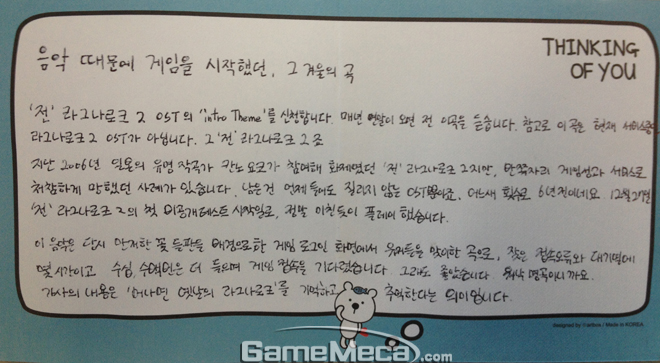 음악 때문에 게임을 시작했던, 그 겨울의 곡
THINKING
OF YOU
'전' 라그나로크 2 OST의 'intro Theme'를 신청합니다. 매년 연말이 오면 전 이곡을 듣습니다. 참고로 이 곡은 현재 서비스중인
라그나로크 2 OST가 아닙니다. 그 '전' 라그나로크 2죠
지난 2006년 일본의 유명 작곡가 칸노 요코가 참여해 화제였던 '전' 라그나로크 2지만, 반쪽자리 게임성과 서비스로
처참하게 망했던 사례가 있습니다. 남은건 언제 들어도 질리지 않는 OST뿐이죠. 어느새 횟수로 6년전이네요. 12월 27일
'전' 라그나로크 2의 첫 비공개테스트 시작일로, 정말 미친듯이 플레이 했습니다.
이 음악은 당시 잔잔한 꽃 들판을 배경으로한 게임 로그인 화면에서 유저들을 맞이한 곡으로, 잦은 접속오류와 대기열에
몇 시간이고 수십, 수백번은 더 들으며 게임 접속을 기다렸습니다. 그래도 좋았습니다. 워낙 명곡이니까요.
가사의 내용은 '머나먼 옛날의 라그나로크'를 기억하고 추억한다는 의미입니다.
designed by Y-artbox / Made in KOREA
GameMeca.com